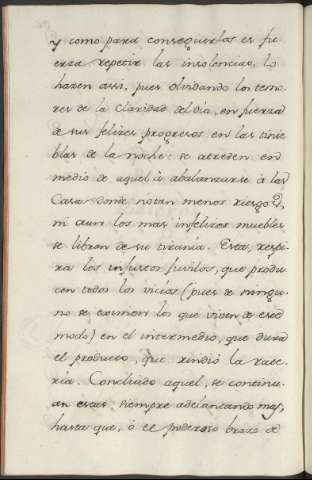 y como para conseguirlas es fu
erza repetir las insolencias, lo
hazen assi, pues olvidando los temo
res de la claridad del dia, en fuerza
de sus felizes progresos en las tinie
blas de la noche: se atreden en
medio de aquel à abalanzarse à las
Casas donde notan menos riesgo,
ni aun los mas infelizes muebles
se libran de su tirania. Esta, respi
ra los infustos jubilos, que produ
cen todos los vicios (pues de ningu
no se eximen los que viven de ese
modo) en el intermedio, que dura
el producto, que rindiò la rate
ria. Concluido aquel, se continu
an estas, siempre adelantando mas,
hasta que, ò el poderoso brazo de